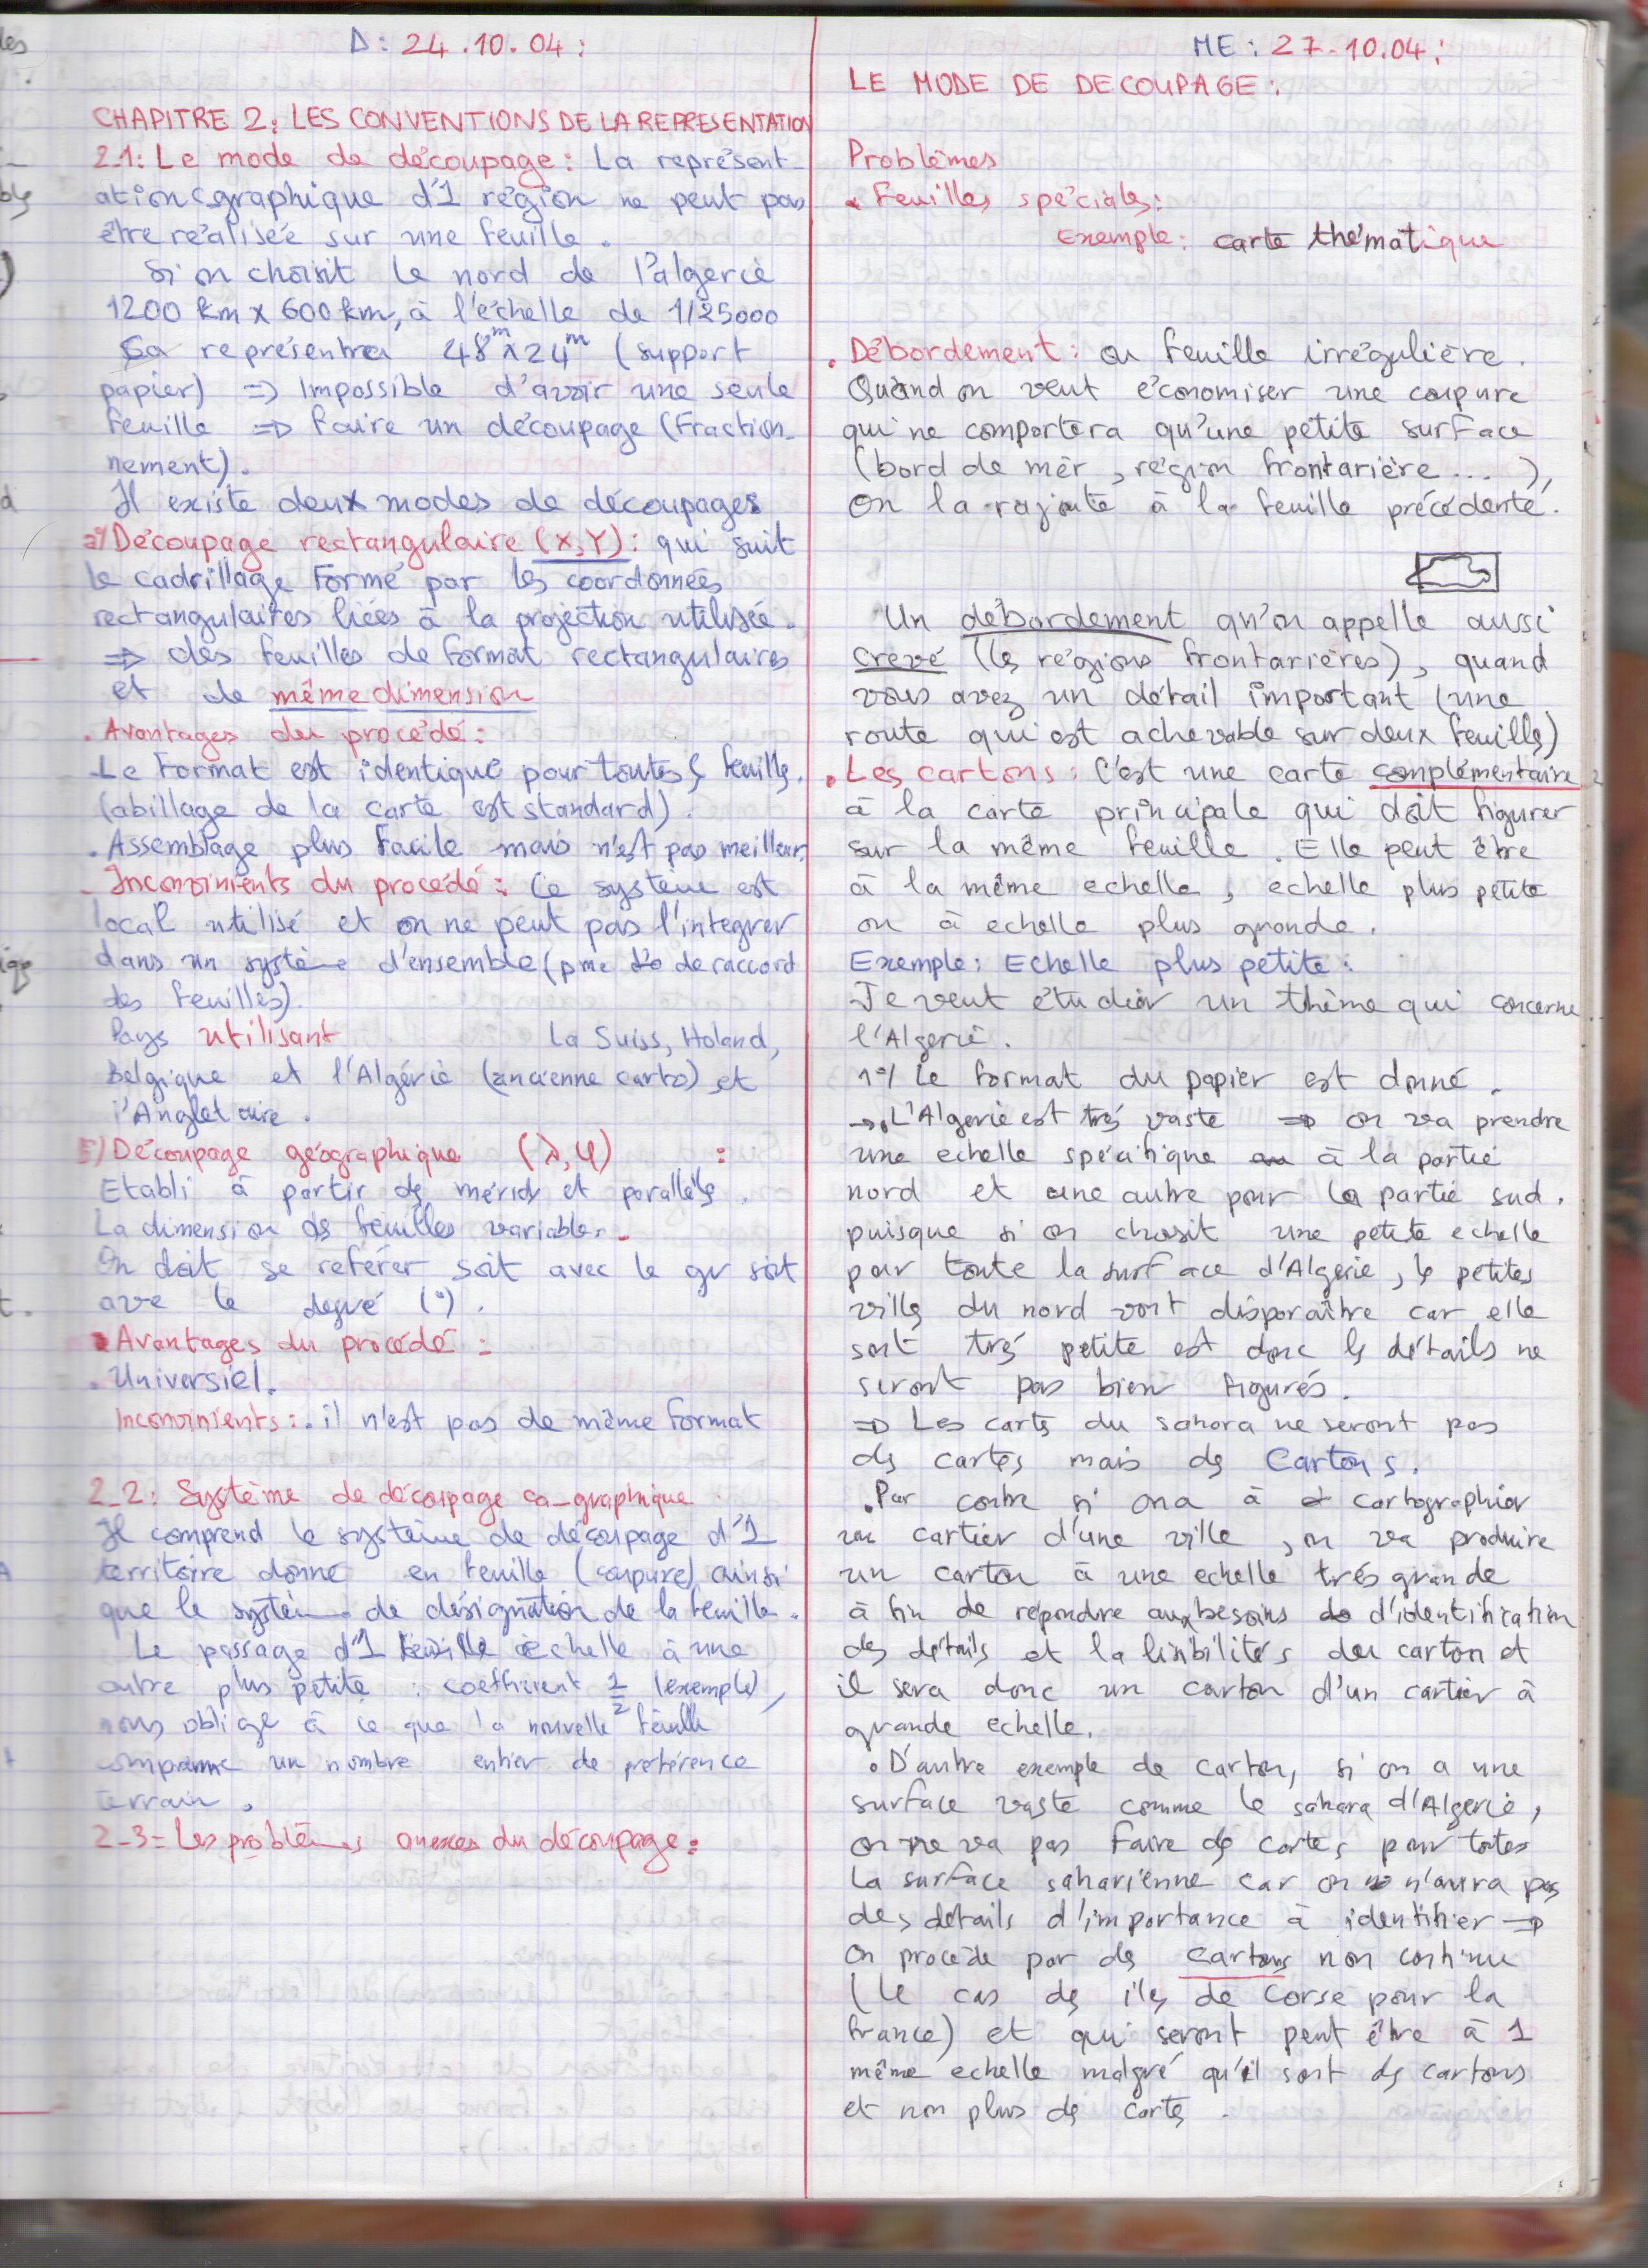 D: 24.10.04:
CHAPITRE 2: LES CONVENTIONS DE LA REPRESENTATION
2-1: Le mode de découpage: La représent-
ation graphique d'1 région ne peut pas
être réalisée sur une feuille.
Si on choisit le nord de l'algerie
1200 km x 600 km, à l'échelle de 1/25000
ça représentra 48m x 24m (support
papier) => Impossible d'avoir une seule
feuille => faire un découpage (Fraction-
nement).
Il existe deux modes de découpages
a) Découpage rectangulaire (X,Y): qui suit
le cadrillage Formé par les coordonnées
rectangulaires liées à la projection utilisée.
=> des feuilles de format rectangulaires
et de même dimension
. Avantages du procédé:
Le Format est identique pour toutes les feuilles.
(abillage de la carte est standard).
. Assemblage plus Facile mais n'est pas meilleur.
- Inconvinients du procédé: Ce système est
local utilisé et on ne peut pas l'integrer
dans un système d'ensemble (pme de raccord
des feuilles).
Pays utilisant La Suiss, Holand,
Belgique et l'Algérie (ancienne carto) et
l'Angletaire.
b) Découpage géographique (λ,φ) :
Etabli à partir des mérids et parallèles.
La dimension des feuilles variables.
On doit se referer soit avec le gr soit
ave le degré (°).
. Avantages du procédé:
. Universiel.
Inconvinients: . il n'est pas de même format
2-2: Système de découpage ca-graphique
Il comprend le système de découpage d'1
territoire donné en feuille (coupure) ainsi
que le système de désignation de la feuille.
Le passage d'1 échelle à une
autre plus petite : coefficient 1/2 (exemple),
nous oblige à ce que la nouvelle feuille
comprenne un nombre entier de préférence
terrain.
2-3= Les problèmes anexes du découpage:
ME: 27-10.04:
LE MODE DE DECOUPAGE:
Problèmes
. Feuilles spéciales:
Exemple: carte thématique
. Débordement: ou feuille irrégulière.
Quand on veut économiser une coupure
qui ne comportera qu'une petite surface
(bord de mer, région frontarière...),
On la rajoute à la feuille précédente.
Un débordement qu'on appelle aussi
crevé (les régions frontarières), quand
vous avez un détail important (une
route qui est achevable sur deux feuilles)
. Les cartons: C'est une carte complémentaire
à la carte principale qui doit figurer
sur la même feuille. Elle peut être
à la même echelle, echelle plus petite
ou à echelle plus grande.
Exemple: Echelle plus petite:
Je veut étudier un thème qui concerne
l'Algerie.
1°/ Le format du papier est donné.
→. L'Algerie est trés vaste => on va prendre
une echelle spécifique à la partie
nord et une autre pour la partie sud.
puisque si on chosit une petite echelle
pour toute la surface d'Algerie, les petites
villes du nord vont disparaître car elle
sont trés petite est donc les détails ne
seront pas bien figurés.
=> Les cartes du sahara ne seront pas
des cartes mais des Cartons.
. Par contre si on a à cartographier
un cartier d'une ville, on va produire
un carton à une echelle trés grande
à fin de répondre aux besoins d'identification
des détails et la lisibilités du carton et
il sera donc un carton d'un cartier à
grande echelle.
. D'autre exemple de carton, si on a une
surface vaste comme le sahara d'Algerie,
on ne va pas Faire des cartes pour toutes
la surface saharienne car on n'aura pas
des détails d'importance à identifier =>
On procède par des cartons non continu
(le cas des iles de Corse pour la
france) et qui seront peut être à 1
même echelle malgré qu'il sont des cartons
et non plus des cartes.